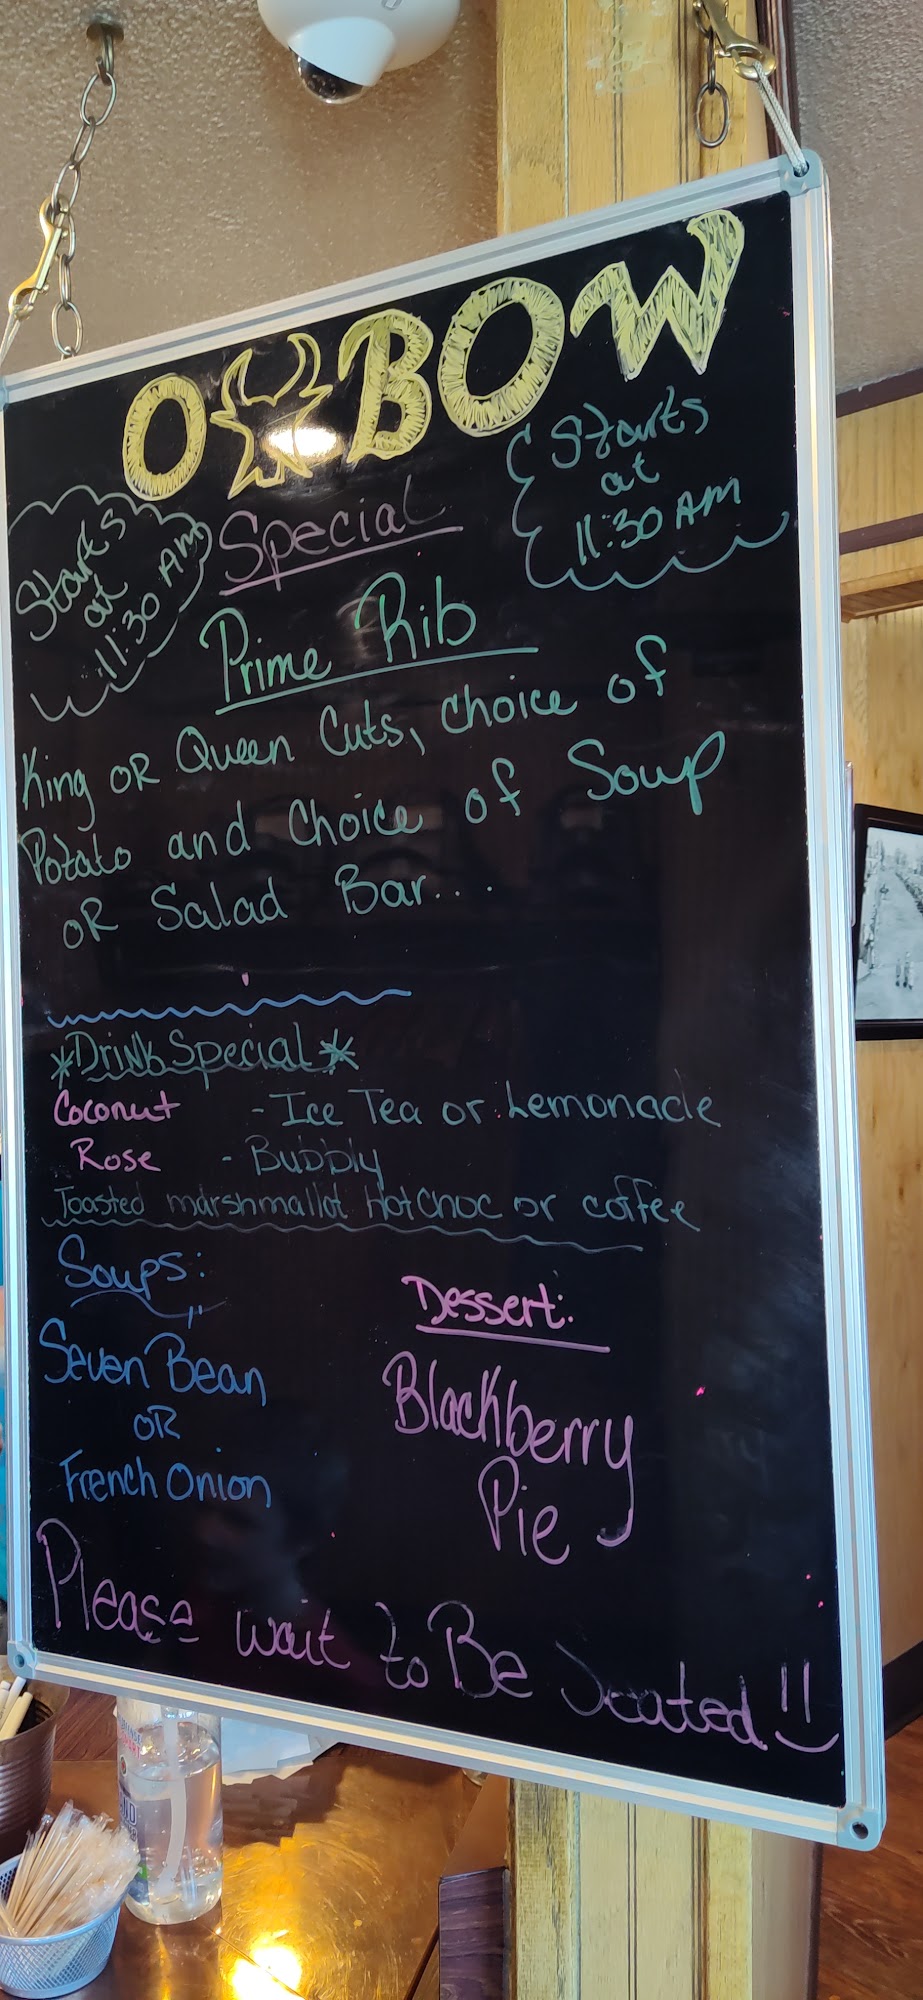 OXBOW
Starts
at
11:30 AM
Special
Starts
at
11:30 AM
Prime Rib
King OR Queen Cuts, Choice of
Potato and Choice of Soup
OR Salad Bar...
*Drink Special*
Coconut - Ice Tea or Lemonade
Rose - Bubbly
Toasted marshmallot Hot Choc or coffee
Soups:
Seven Bean
OR
French Onion
Dessert:
Blackberry
Pie
Please wait to Be Seated!!